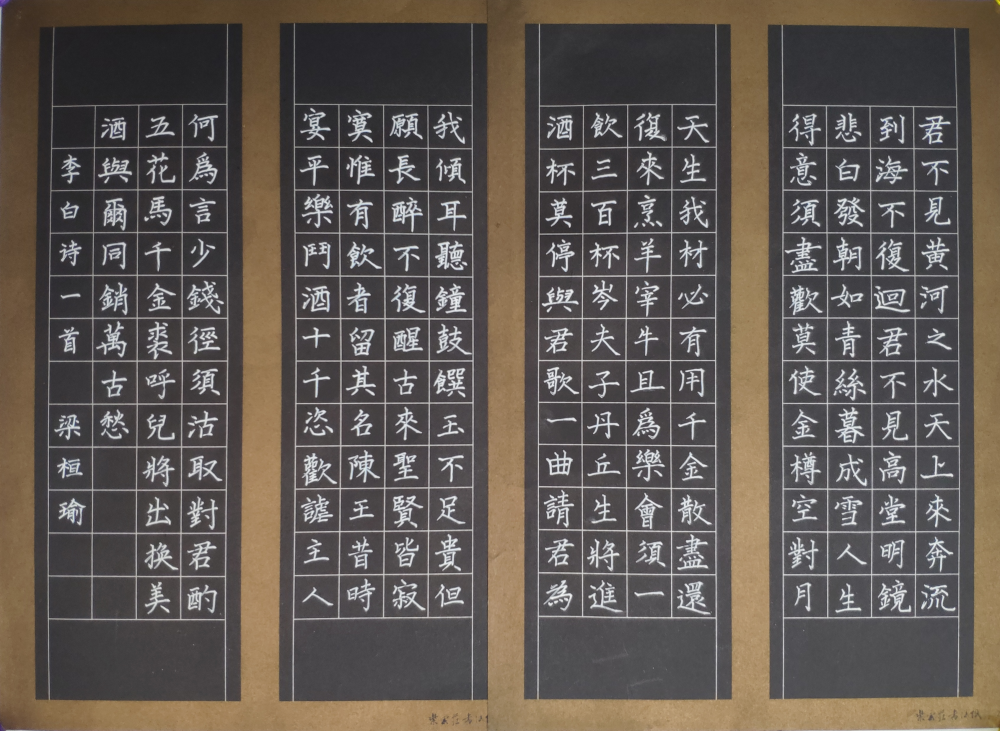 君不見黄河之水天上來奔流
到海不復迴君不見高堂明鏡
悲白發朝如青絲暮成雪人生
得意須盡歡莫使金樽空對月
天生我材必有用千金散盡還
復來烹羊宰牛且爲樂會須一
飲三百杯岑夫子丹丘生將進
酒杯莫停與君歌一曲請君為
我傾耳聽鐘鼓饌玉不足貴但
願長醉不復醒古來聖賢皆寂
寞惟有飲者留其名陳王昔時
宴平樂鬥酒十千恣歡謔主人
何爲言少錢徑須沽取對君酌
五花馬千金裘呼兒將出换美
酒與爾同銷萬古愁
李白诗一首 梁桓瑜